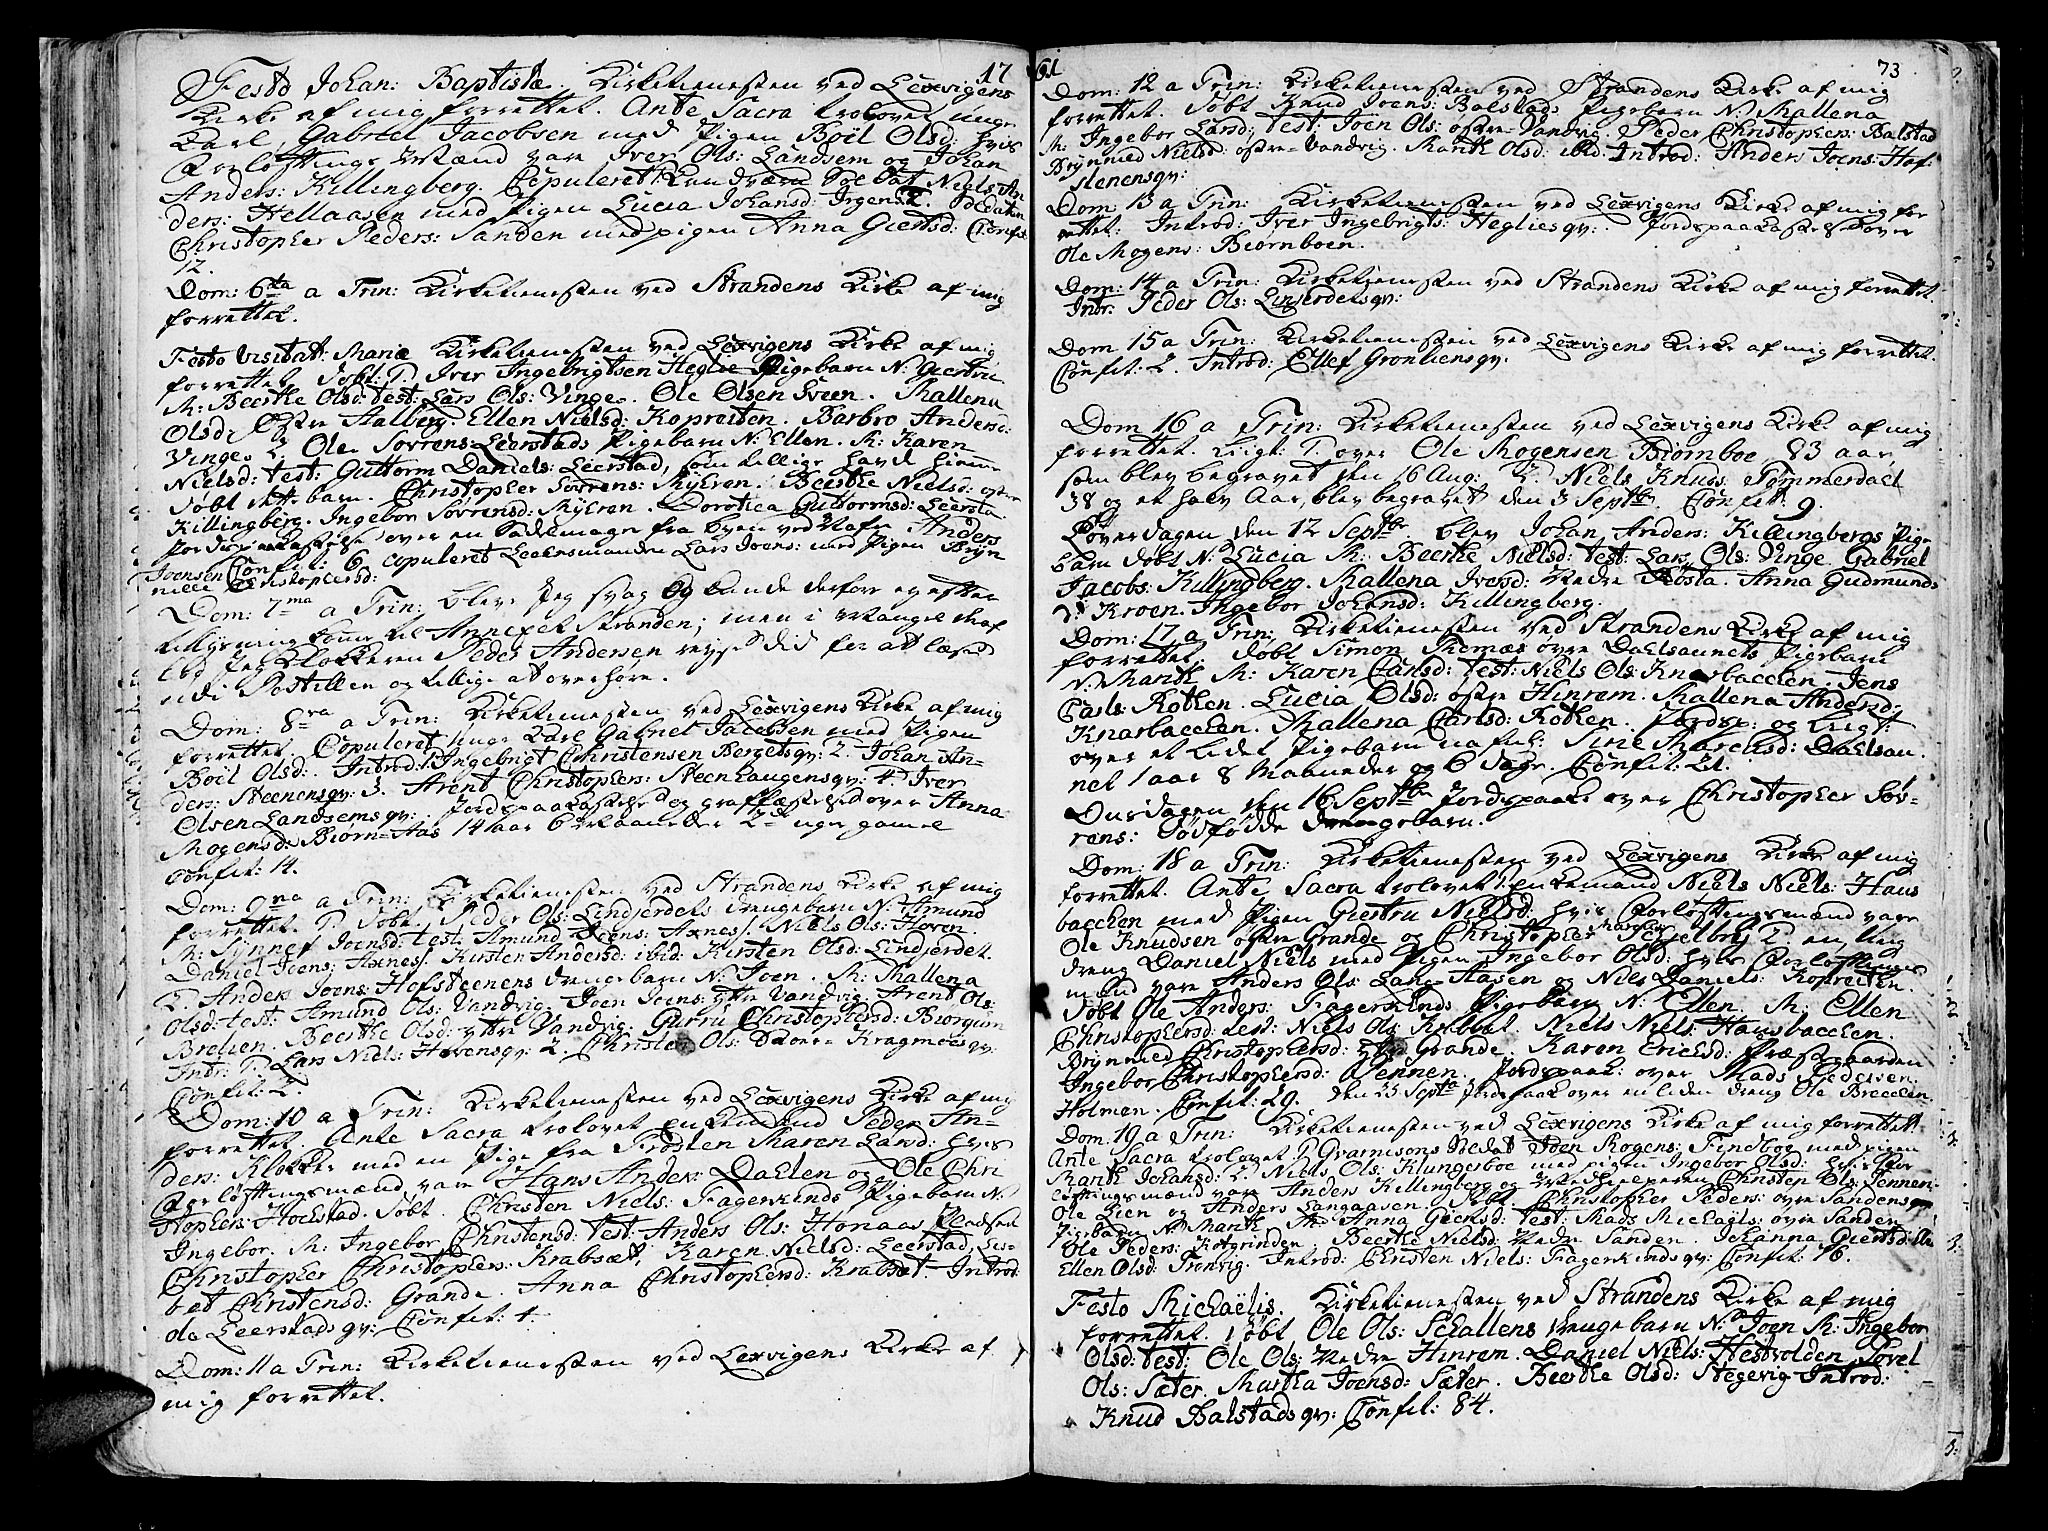 17
Festo Johan: Baptistæ. Kirketienesten ved Lexvigens
Kirke af mig forrettet. Ante Sacra trolovet unge
Karl Gabriel Jacobsen med Pigen Boil Olsd: hvis
Forløftings Mænd vare Iver Ols: Landsem og Johan
Anders: Killingberg. Copuleret Soldat Niels An
ders: Hellaasen med Pigen Lucia Johansd:
Christopher Peders: Sanden med pigen Anna Giertsd: Confit:
12.
Dom: 6ta a Trin: Kirketienesten ved Strandens Kirke af mig
forrettet.
Festo Visitat: Mariæ Kirketienesten ved Lexvigens Kirke af mig
forrettet. Døbt: 1. Iver Ingebrigtsen Heglie Pigebarn N: Giertru
M: Beerthe Olsd: test: Lars Ols: Vinge. Ole Olsen Iveen. Mallena
Olsd: Østre Aalberg. Ellen Nielsd: Kopreiten. Barbro Andersd:
Vinge. 2. Ole Sovrens: Leerstads Pigebarn N: Ellen. M: Karen
Nielsd: test: Guttorm Daniels: Leerstad, som tillige havde hiemme
døbt dette barn. Christopher Sovrens: Myeren. Beerthe Nielsd: østre
Killingberg. Ingebor Sovrensd: Myeren. Dorothea Guttormsd: Leersta
Jordspaakastelse over en fra Byen ved Nafn Anders
Joensen Confit: 6 copuleret Lars Joens: med Pigen Bryn
nild Christophersd:
Dom: 7ma a Trin: blev Jeg svag og kunde derfor ey efter
tillysning komme til Annexet Stranden; men i Mangel deraf
lod Jeg Klokkeren Peder Andersen reyse did for at læse
udi Postillen og tillige at overhøre.
Dom: 8va a Trin: Kirketienesten ved Lexvigens Kirke af mig
forrettet. Copuleret unge Karl Gabriel Jacobsen med Pigen
Boil Olsd: Introd: 1. Ingebrigt Christensen Bergets qv: 2. Johan An-
ders: Steenens qv: 3. Arent Christophers: Steenhaugens qv: 4. Iver
Olsen Landsems qv: Jordspaakastelse og graffæstelse over Anna
Mogensd: Biørn-Aas 14 aar 6 Maaneder 2 uger gamel
Confit: 14.
Dom: 9na a Trin: Kirketienesten ved Strandens Kirke af mig
forrettet. 1. Døbt Peder Ols: Lindjerdets drengebarn N: Amund
M: Synnef Joensd: test: Amund Joens: Axness. Niels Ols: Hoven.
Daniel Joens: Axness. Kirsten Andersd: ibid: Kirsten Olsd: Lindjerdet.
2. Anders Joens: Hofsteenens drengebarn N: Joen. M: Mallena
Olsd: test: Amund Ols: Vandvig. Joen Joens: yttre Vandvig. Arent Ols:
Brelien. Beerthe Olsd: yttre Vandvig. Gurru Christophersd: Biørgum
Intr: 1. Lars Niels: Hovens qv: 2. Christen Ols: Kragmoes qv:
Confit: 2.
Dom: 10 a Trin: Kirketienesten ved Lexvigens Kirke af mig
forrettet. Ante Sacra trolovet Enkemand Peder An-
ders: Klokker med en Pige fra Frosten Maren Land: hvis
Forløftingsmænd vare Hans Anders: Dahlen og Ole Chri
stophers: Hochstad. Døbt. Christen Niels: Fagerlinds Pigebarn N:
Ingebor. M: Ingebor Christensd: test: Anders Ols: Honaas
Christopher Christophers: Krabsæt, Karen Nielsd: Leerstad. Lis-
bet Christensd: Grande. Anna Christophersd: Krabsæt. Introd:
Ole Leerstads qv: Confit: 4.
Dom: 11 a Trin: Kirketienesten ved Lexvigens Kirke af
mig forrettet.
61
73
Dom: 12 a Trin: Kirketienesten ved Strandens Kirke af mig
forrettet. Døbt Knud Joens: Balstads Pigebarn N: Mallena
M: Ingebor Land: test: Joen Ols: østre-Vandvig. Peder Christophers: Balstad
Brynnied Nielsd: østre-Vandvig. Marith Olsd: ibid: Introd: Anders Joens: Hof-
stenens qv:
Dom 13 a Trin: Kirketienesten ved Lexvigens Kirke af mig for
rettet. Introd: Iver Ingebrigts: Heglies qv: Jordspaakastelse over
Ole Mogens: Biørnboen.
Dom: 14 a Trin: Kirketienesten ved Strandens Kirke af mig forrettet.
Intr: Peder Ols: qv:
Dom 15 a Trin: Kirketienesten ved Lexvigens Kirke af mig forrettet.
Confit: 2. Introd: Ellef Gronliens qv:
Dom 16 a Trin: Kirketienesten ved Lexvigens Kirke af mig
forrettet. Liigt: 1. over Ole Mogensen Biørnboe, 83 aar,
som blev begravet den 16 Aug: 2. Niels Knuds: Tømmerdall
38 og et halv Aar, blev begravet den 3 Septbr. Confit: 9.
Løverdagen den 12 Septbr blev Johan Anders: Killingbergs Pige
barn døbt N: Lucia M: Beerthe Nielsd: test: Lars Ols: Vinge. Gabriel
Jacobs: Killingberg. Mallena Iversd: Nedre Kosta. Anna Gudmunds
d: Kroen. Ingebor Johansd: Killingberg.
Dom: 17 a Trin: Kirketienesten ved Strandens Kirke af mig
forrettet. Døbt Simon Thomæs: øvre Dahlsaunets Pigebarn
N: Marith M: Karen test: Niels Ols: Knarbacchen. Jens
Carls: Kothen. Lucia Olsd: østre Hinrem. Mallena Andersd:
Knarbacchen. Mallena Carlsd: Kothen. Jordsp: og Liigt:
over et lidet Pigebarn nafnl: Sirie Marchusd: Dahlsau
net 1 aar 8 Maaneder og 6 dage. Confit: 21.
Onsdagen den 16 Septbr Jordspaak: over Christopher Sov-
rens: dødfødde drengebarn.
Dom: 18 a Trin: Kirketienesten ved Lexvigens Kirke af mig
forrettet. Ante Sacra trolovet 1. Enkemand Niels Niels: Haus
bacchen med Pigen Giertru Nielsd: hvis Forløftingsmænd vare
Ole Knudsen østre Grande og Christopher Schielbrej 2. en ung
dreng Daniel Niels: med Pigen Ingebor Olsd: hvis Forløftings
mænd vare Anders Ols: Lang-Aasen og Niels Daniels: Kopreiten.
Døbt Ole Anders: Fagerlinds Pigebarn N: Ellen. M: Ellen
Christophersd: test: Niels Ols: Niels Niels: Hausbacchen.
Brynnied Christophersd: yttre Grande. Karen Erichsd: Præstegaarden
Ingebor Christophersd: Vennen. Jordspaak: over Mads Pedersen
Holmen. Confit: 29. den 25 Septbr Jordspaak over en liden dreng Ole Brecchen.
Dom: 19 a Trin: Kirketienesten ved Lexvigens Kirke af mig forrettet.
Ante Sacra trolovet 1. Soldat Joen Rogens: Findboe med pigen
Marith Johansd: 2. Niels Ols: Klungerboe med pigen Ingebor Olsd: hvis For
løftingsmænd vare Anders Killingberg og Christen Ols: Vennen.
Ole Lien og Anders Langaasen. Døbt Christopher Peders: øvre Sandens
Pigebarn N: Marith M: Anna Giertsd: test: Mads Michaels: øvre Sanden.
Ole Peders: Kotgrinden. Beerthe Nielsd: Nedre Sanden. Johanna Giertsd:
Ellen Olsd: Tronvig. Introd: Christen Niels: Fagerlinds qv: Confit: 76.
Festo Michaëlis. Kirketienesten ved Strandens Kirke af mig
forrettet. Døbt Ole Ols: Schallens drengebarn N: Joen M: Ingebor
Olsd: test: Ole Ols: Nedre Hinrem. Daniel Niels: Hestvolden.
Ols: Sæter. Martha Joensd: Sæter. Beerthe Olsd: Stegevig Introd:
Knud Balstads qv: Confit: 84.